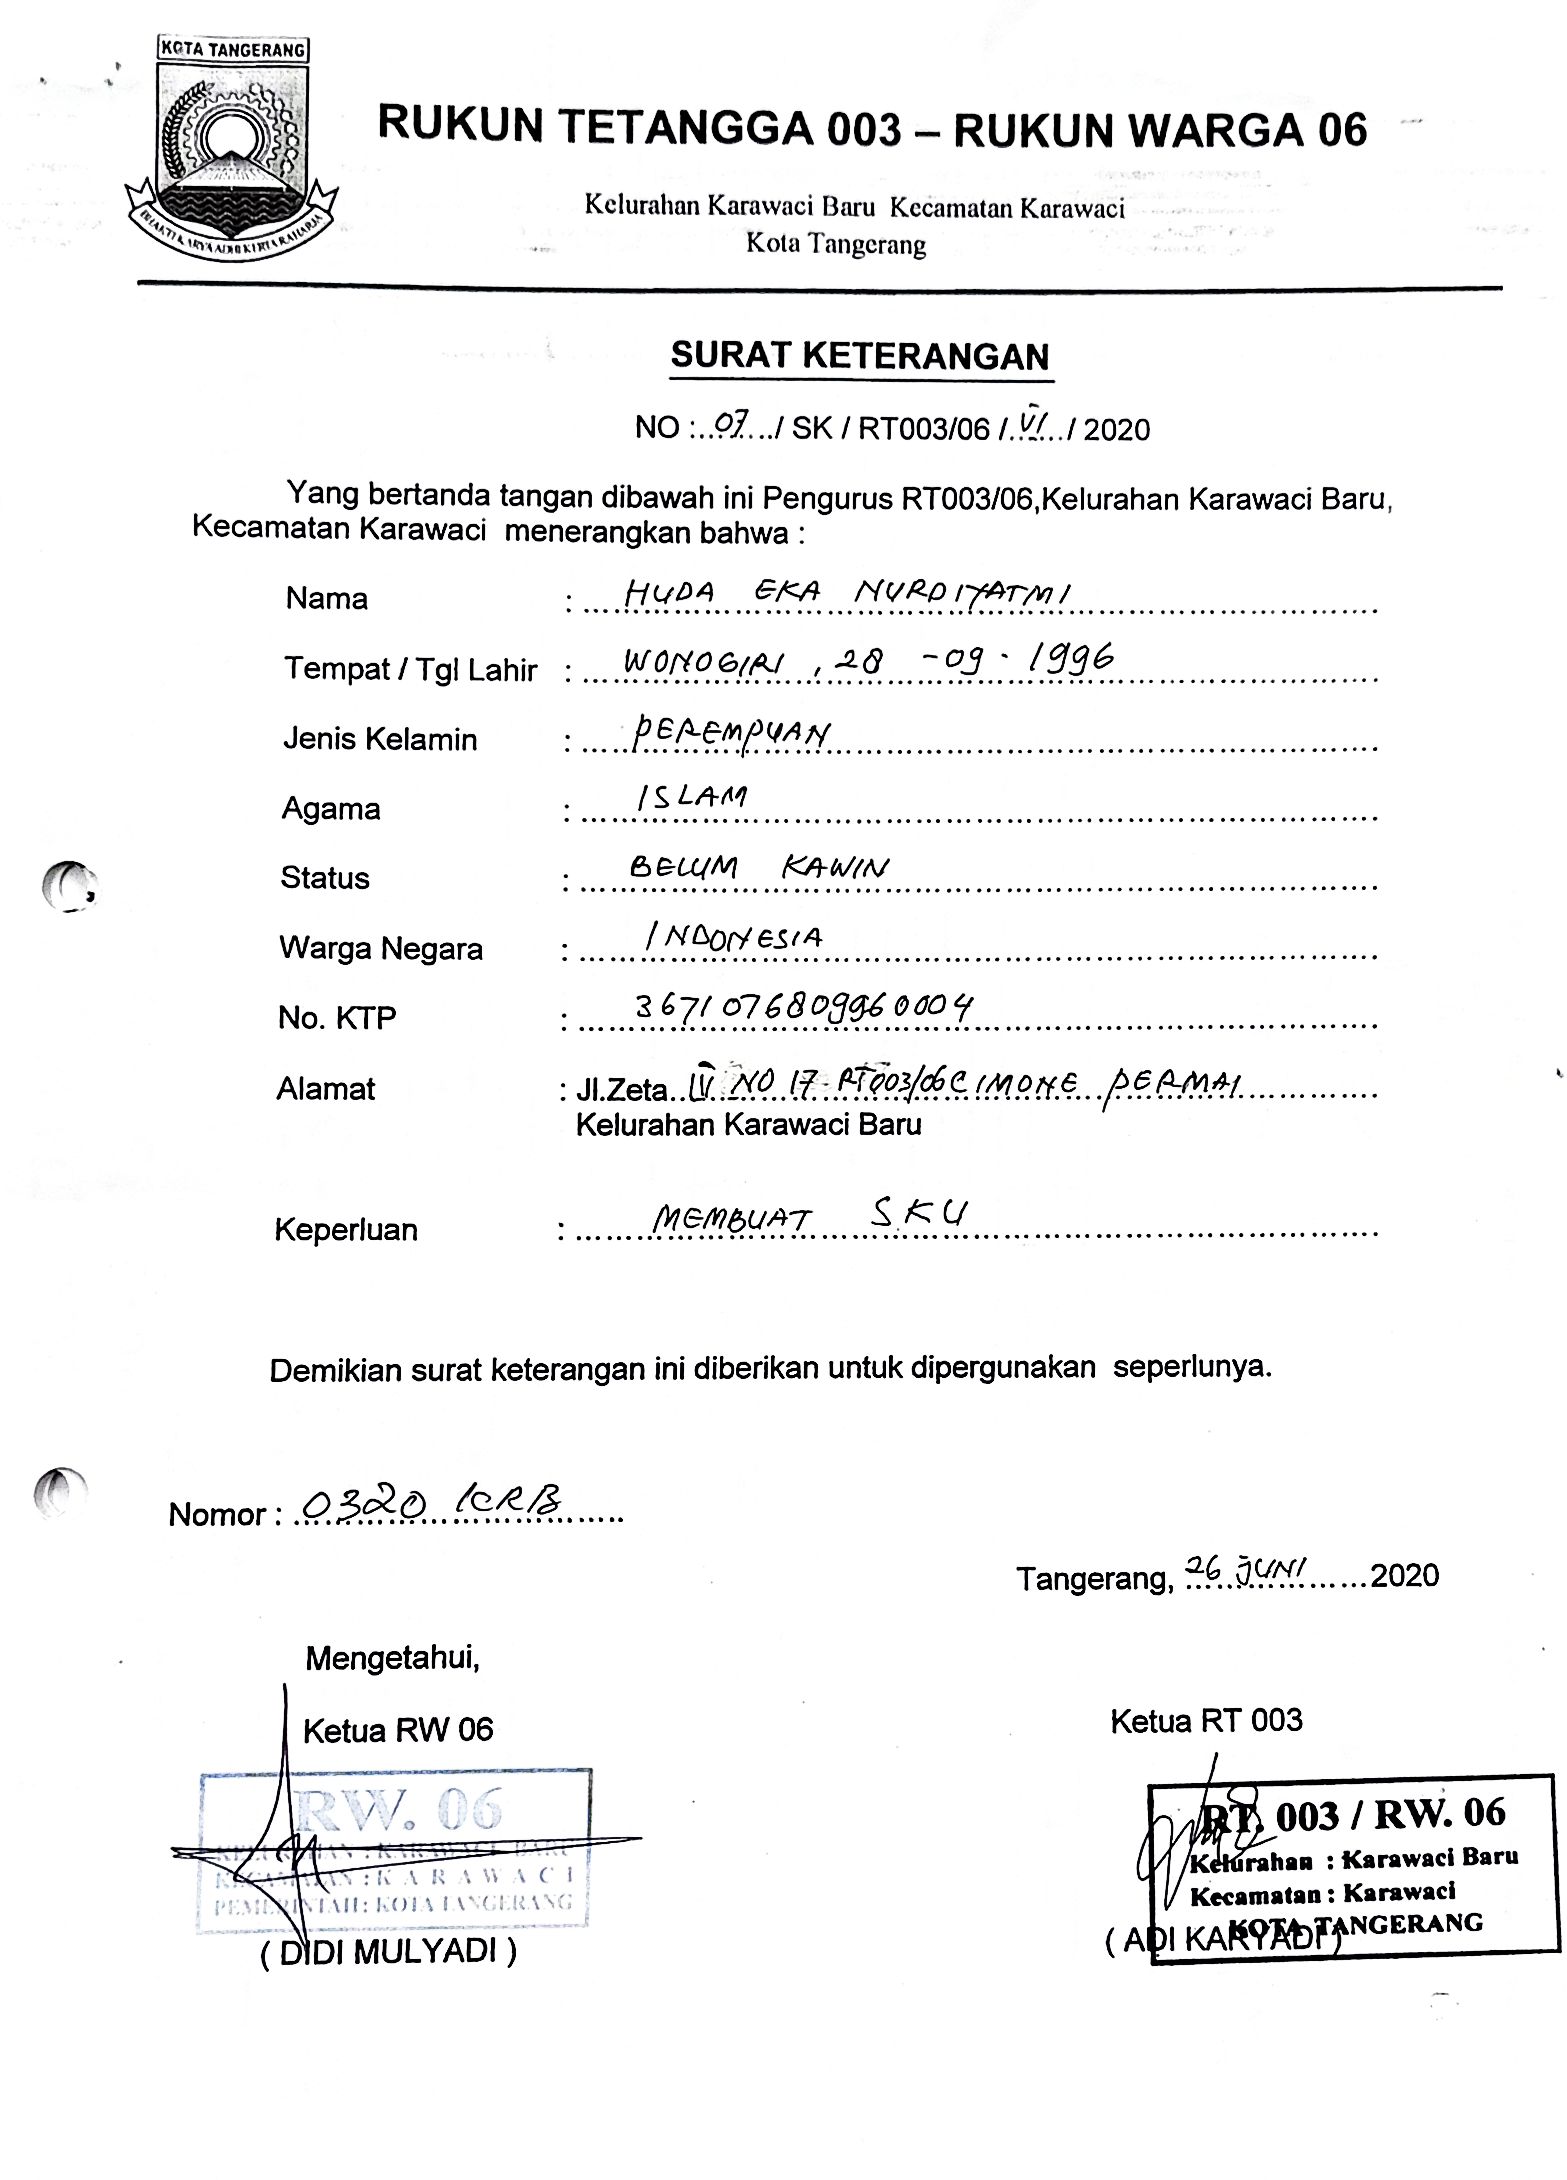 KOTA TANGERANG
RUKUN TETANGGA 003 – RUKUN WARGA 06
Kelurahan Karawaci Baru Kecamatan Karawaci
Kota Tangerang
SURAT KETERANGAN
NO :..07..../ SK / RT003/06 /.VI../ 2020
Yang bertanda tangan dibawah ini Pengurus RT003/06,Kelurahan Karawaci Baru,
Kecamatan Karawaci menerangkan bahwa :
Nama : HUDA EKA NURDIYATMI
Tempat / Tgl Lahir : WONOGIRI , 28 -09 - 1996
Jenis Kelamin : PEREMPUAN
Agama : ISLAM
Status : BELUM KAWIN
Warga Negara : INDONESIA
No. KTP : 3671076809960004
Alamat : Jl.Zeta..IV NO 17 RT003/06 CIMONE PERMAI
Kelurahan Karawaci Baru
Keperluan : MEMBUAT SKU
Demikian surat keterangan ini diberikan untuk dipergunakan seperlunya.
Nomor : 0320 KRB
Tangerang, 26 JUNI 2020
Mengetahui,
Ketua RW 06
Ketua RT 003
RW. 06
KELURAHAN : KARAWACI BARU
KECAMATAN : KARAWACI
PEMERINTAH : KOTA TANGERANG
( DIDI MULYADI )
RT. 003 / RW. 06
Kelurahan : Karawaci Baru
Kecamatan : Karawaci
KOTA TANGERANG
( ADI KARYADI )